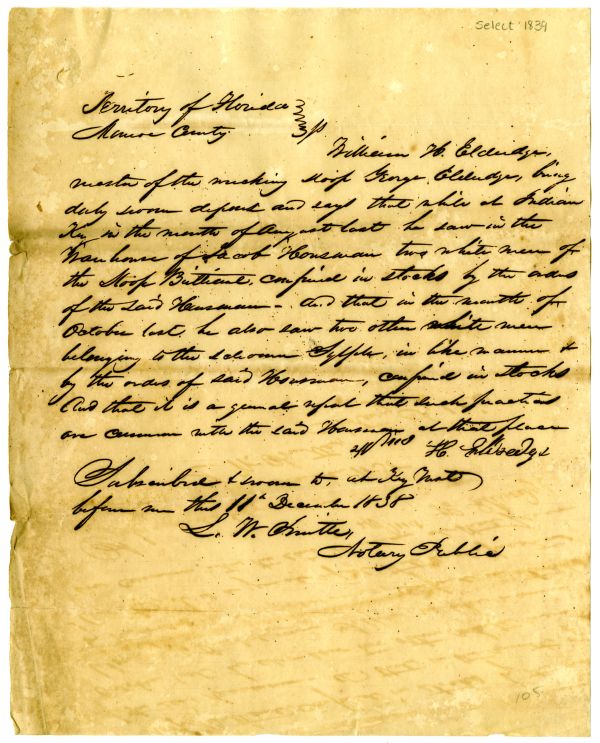 Select 1839
Territory of Florida
Monroe County } ss
William H. Eldredge,
master of the wrecking sloop George Eldredge, being
duly sworn deposes and says that while at Indian
Key in the month of August last he saw in the
Warehouse of Jacob Housman two white men of
the Sloop Brilliant, confined in stocks by the orders
of the said Housman - And that in the month of
October last he also saw two other white men
belonging to the schooner Sylph, in like manner &
by the orders of said Housman, confined in stocks
And that it is a general report that such practices
are common with the said Housman at that place
Wm H. Eldredge
Subscribed & sworn to, at Key West
before me this 11th December 1838
L. W. Smith,
Notary Public
105